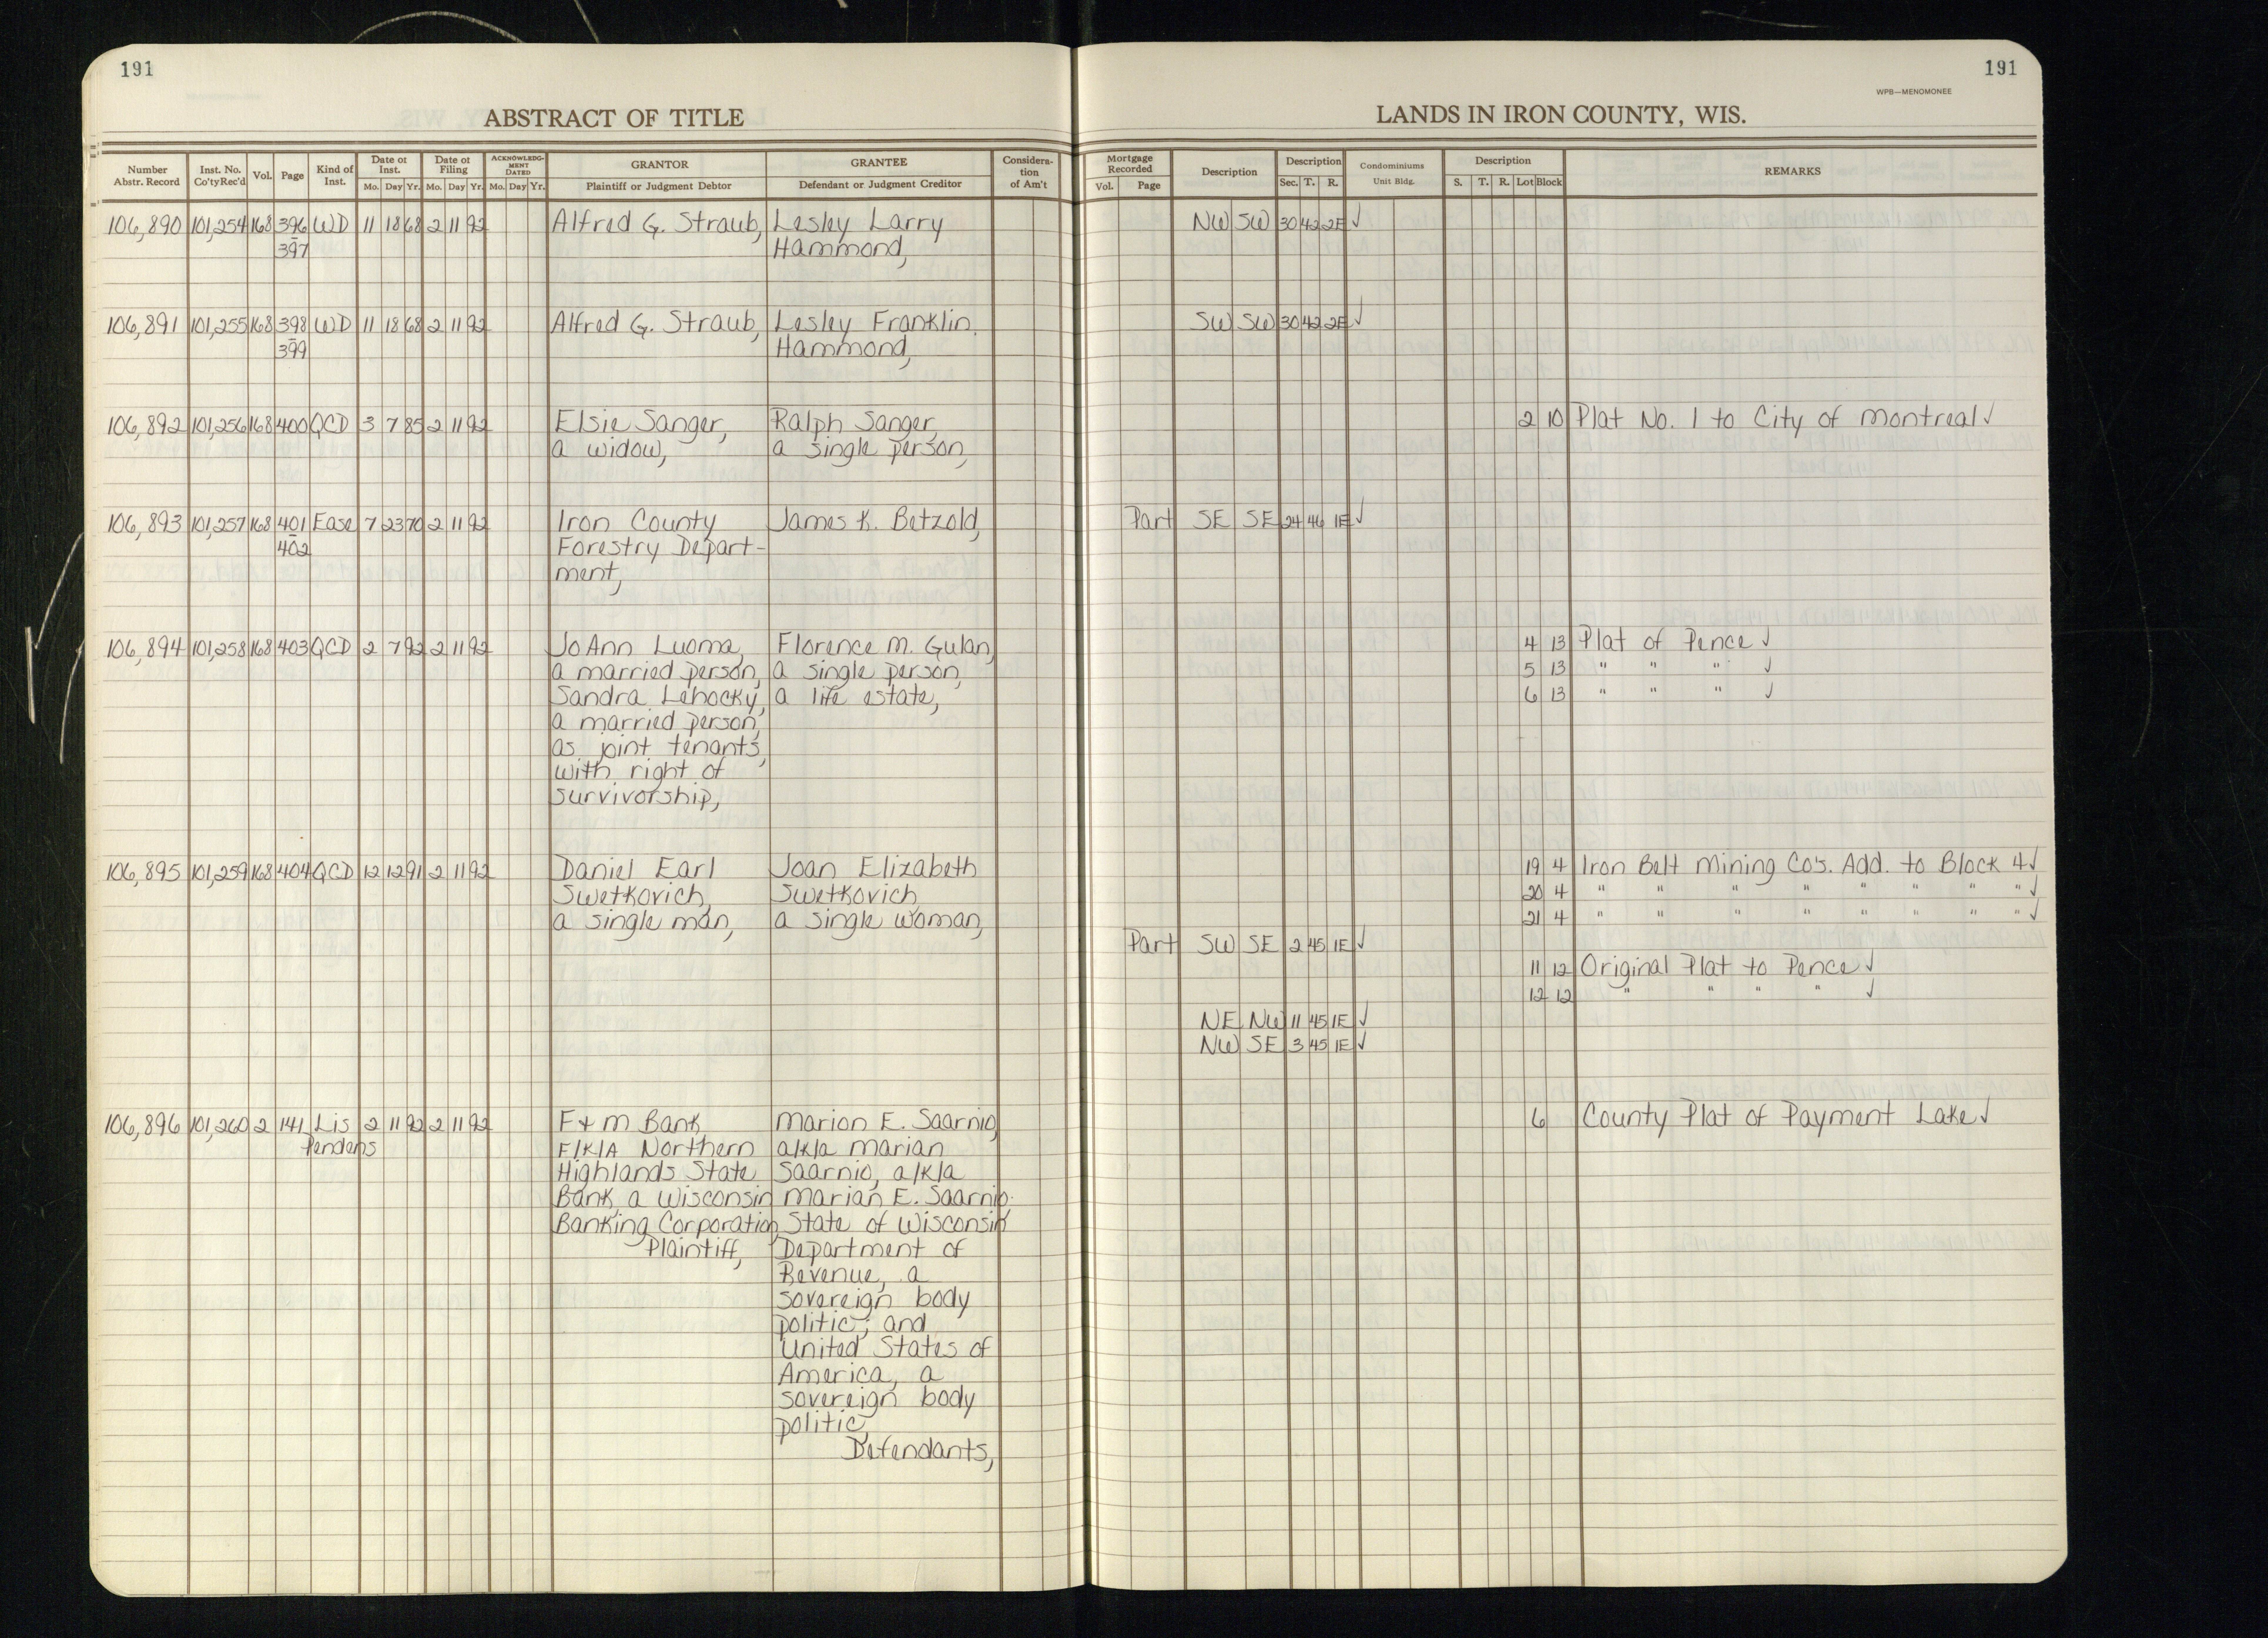 191
191
WPB—MENOMONEE
ABSTRACT OF TITLE
LANDS IN IRON COUNTY, WIS.
Number Abstr. Record | Inst. No. Co'tyRec'd | Vol. | Page | Kind of Inst. | Date of Inst. Mo. Day Yr. | Date of Filing Mo. Day Yr. | ACKNOWLEDG-MENT DATED Mo. Day Yr. | GRANTOR Plaintiff or Judgment Debtor | GRANTEE Defendant or Judgment Creditor | Considera-tion of Am't | Mortgage Recorded Vol. Page | Description | Description Sec. T. R. | Condominiums Unit Bldg. | Description S. T. R. Lot Block | REMARKS
106,890 101,254 168 396 WD 11 18 68 2 11 92 Alfred G. Straub, Lesley Larry NW SW 30 42 2E ✓
- 397 Hammond,
106,891 101,255 168 398 WD 11 18 68 2 11 92 Alfred G. Straub, Lesley Franklin SW SW 30 42 2E ✓
- 399 Hammond,
106,892 101,256 168 400 QCD 3 7 85 2 11 92 Elsie Sanger, Ralph Sanger, 2 10 Plat No. 1 to City of Montreal ✓
a widow, a single person,
106,893 101,257 168 401 Ease 7 23 70 2 11 92 Iron County James K. Betzold, Part SE SE 24 46 1E ✓
- 402 Forestry Depart-
ment,
106,894 101,258 168 403 QCD 2 7 92 2 11 92 JoAnn Luoma, Florence M. Gulan, 4 13 Plat of Pence ✓
a married person, a single person, 5 13 " " " ✓
Sandra Lehocky, a life estate, 6 13 " " " ✓
a married person,
as joint tenants,
with right of
survivorship,
106,895 101,259 168 404 QCD 12 12 91 2 11 92 Daniel Earl Joan Elizabeth 19 4 Iron Belt Mining Co's. Add. to Block 4 ✓
Swetkovich, Swetkovich, 20 4 " " " " " " " " ✓
a single man, a single woman, 21 4 " " " " " " " " ✓
Part SW SE 2 45 1E ✓
11 12 Original Plat to Pence ✓
12 12 " " " " ✓
NE NW 11 45 1E ✓
NW SE 3 45 1E ✓
106,896 101,260 2 141 Lis 2 11 92 2 11 92 F & M Bank Marion E. Saarnio, 6 County Plat of Payment Lake ✓
Pendens F/K/A Northern a/k/a Marian
Highlands State Saarnio, a/k/a
Bank, a Wisconsin Marian E. Saarnio;
Banking Corporation, State of Wisconsin
Plaintiff, Department of
Revenue, a
sovereign body
politic; and
United States of
America, a
sovereign body
politic,
Defendants,